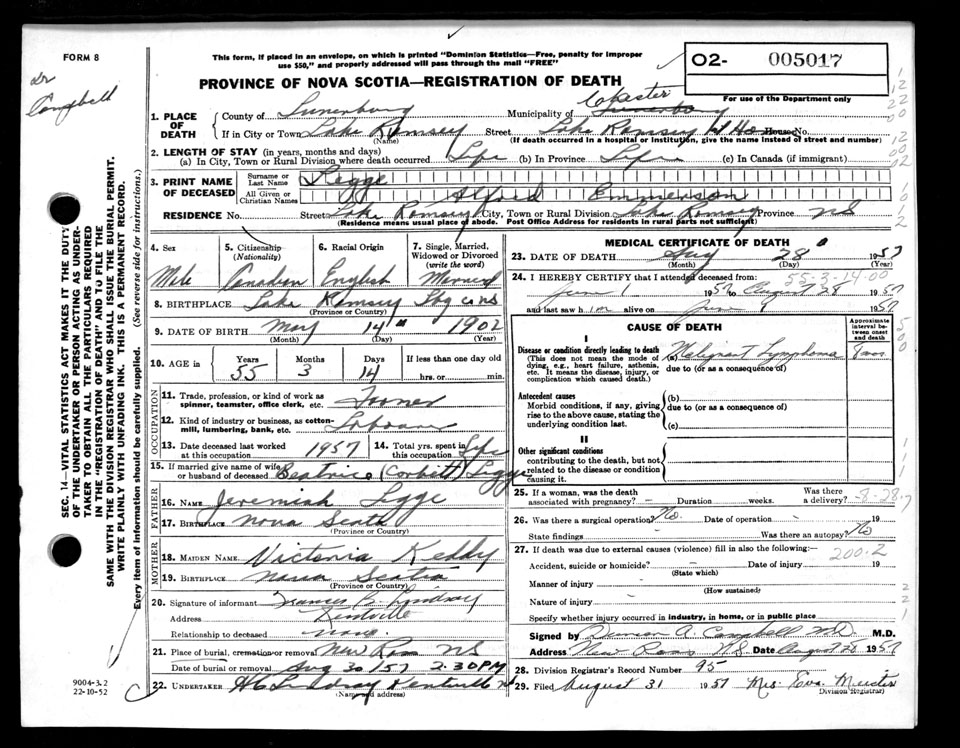 FORM 8
Dr
Campbell
This form, if placed in an envelope, on which is printed "Dominion Statistics—Free, penalty for improper
use $50," and properly addressed will pass through the mail "FREE"
PROVINCE OF NOVA SCOTIA—REGISTRATION OF DEATH
O2- 005017
For use of the Department only
1. PLACE OF DEATH
County of Lunenburg Municipality of Chester
If in City or Town Lake Ramsey Street Lake Ramsay House No.
(Name) (If death occurred in a hospital or institution, give the name instead of street and number)
2. LENGTH OF STAY (in years, months and days)
(a) In City, Town or Rural Division where death occurred Life (b) In Province Life (c) In Canada (if immigrant)
3. PRINT NAME OF DECEASED
Surname or Last Name Legge
All Given or Christian Names Alfred Emmerson
RESIDENCE No. Street Lake Ramsey City, Town or Rural Division Lake Ramsey Province NS
(Residence means usual place of abode. Post Office Address for residents in rural parts not sufficient)
4. Sex
Male
5. Citizenship (Nationality)
Canadian
6. Racial Origin
English
7. Single, Married, Widowed or Divorced (write the word)
Married
8. BIRTHPLACE Lake Ramsey Lbg co NS
(Province or Country)
9. DATE OF BIRTH May 14 1902
(Month) (Day) (Year)
10. AGE in Years 55 Months 3 Days 14 If less than one day old
hrs. or min.
OCCUPATION
11. Trade, profession, or kind of work as spinner, teamster, office clerk, etc.
12. Kind of industry or business, as cotton-mill, lumbering, bank, etc.
13. Date deceased last worked at this occupation 1957 14. Total yrs. spent in this occupation Life
15. If married give name of wife or husband of deceased Beatrice (Corbitt) Legge
FATHER
16. NAME Jeremiah Legge
17. BIRTHPLACE Nova Scotia
(Province or Country)
MOTHER
18. MAIDEN NAME Victoria Keddy
19. BIRTHPLACE Nova Scotia
(Province or Country)
20. Signature of informant Frances B. Lindsay
Address Kentville
Relationship to deceased none.
21. Place of burial, cremation or removal New Ross NS
Date of burial or removal Aug 30/57 2.30PM
22. UNDERTAKER Lindsay Kentville NS
(Name and address)
MEDICAL CERTIFICATE OF DEATH
23. DATE OF DEATH Aug 28 1957
(Month) (Day) (Year)
55-3-14.00
24. I HEREBY CERTIFY that I attended deceased from:
June 1 1957 to August 28 1957
and last saw him alive on June 1957
CAUSE OF DEATH
Approximate interval between onset and death
I
Disease or condition directly leading to death (a) Malignant Lymphoma
(This does not mean the mode of dying, e.g., heart failure, asthenia, etc. It means the disease, injury, or complication which caused death.)
due to (or as a consequence of)
Antecedent causes
Morbid conditions, if any, giving rise to the above cause, stating the underlying condition last.
(b)
due to (or as a consequence of)
(c)
II
Other significant conditions
contributing to the death, but not related to the disease or condition causing it.
25. If a woman, was the death associated with pregnancy? - Duration weeks. Was there a delivery?
26. Was there a surgical operation? No. Date of operation - 19
State findings Was there an autopsy? No
27. If death was due to external causes (violence) fill in also the following:—
200-2
Accident, suicide or homicide? - Date of injury 19
(State which)
Manner of injury
(How sustained)
Nature of injury
Specify whether injury occurred in industry, in home, or in public place
Signed by Campbell MD M.D.
Address New Ross N.S. Date August 28 1957
28. Division Registrar's Record Number 95
29. Filed August 31 1957 Mrs. Eva Meister
Division Registrar)
SEC. 14—VITAL STATISTICS ACT MAKES IT THE DUTY
OF THE UNDERTAKER OR PERSON ACTING AS UNDER-
TAKER TO OBTAIN ALL THE PARTICULARS REQUIRED
IN THE "REGISTRATION OF DEATH" AND TO FILE THE
SAME WITH THE DIVISION REGISTRAR WHO SHALL ISSUE THE BURIAL PERMIT.
WRITE PLAINLY WITH UNFADING INK. THIS IS A PERMANENT RECORD.
Every item of information should be carefully supplied. (See reverse side for instructions.)
9004-3.2
22-10-52